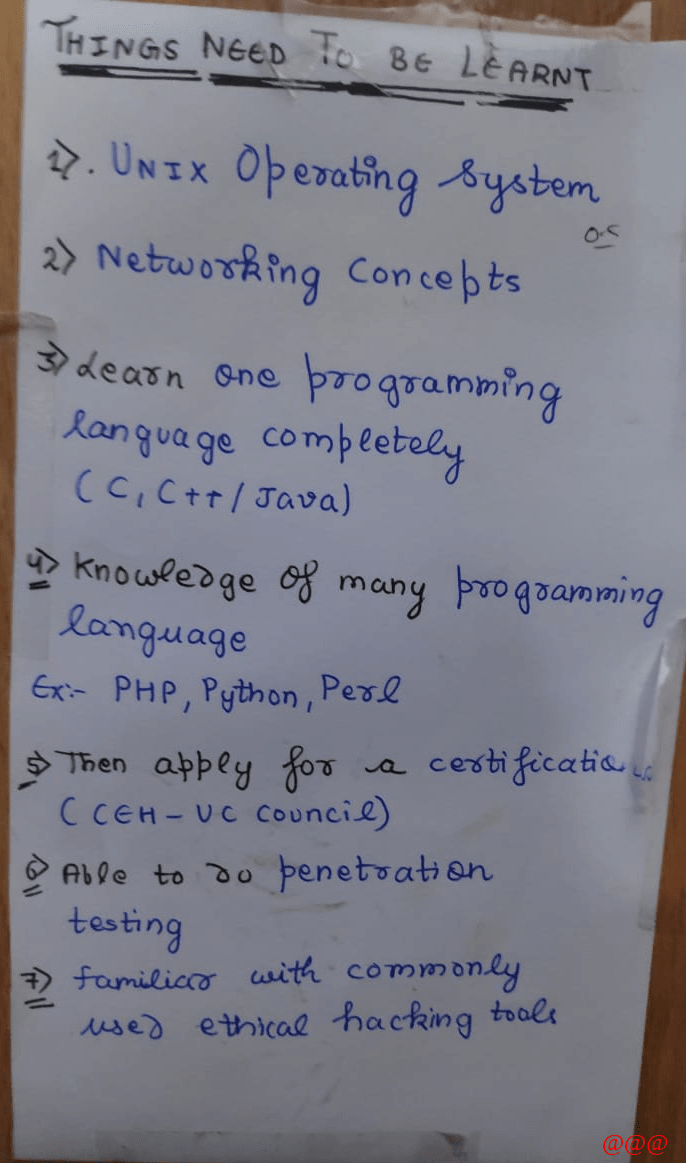 THINGS NEED TO BE LEARNT
1). UNIX Operating System
O.S
2) Networking Concepts
3) Learn one programming
language completely
(C, C++/Java)
4) Knowledge of many programming
language
Ex:- PHP, Python, Perl
5) Then apply for a certification
(CEH - UC Council)
6) Able to do penetration
testing
7) familiar with commonly
used ethical hacking tools
@@@